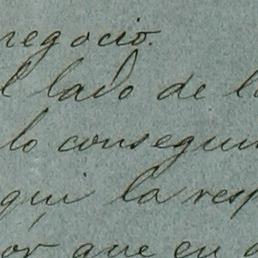 negocio.
l lado de l
lo consegui
qui la resp
or que en